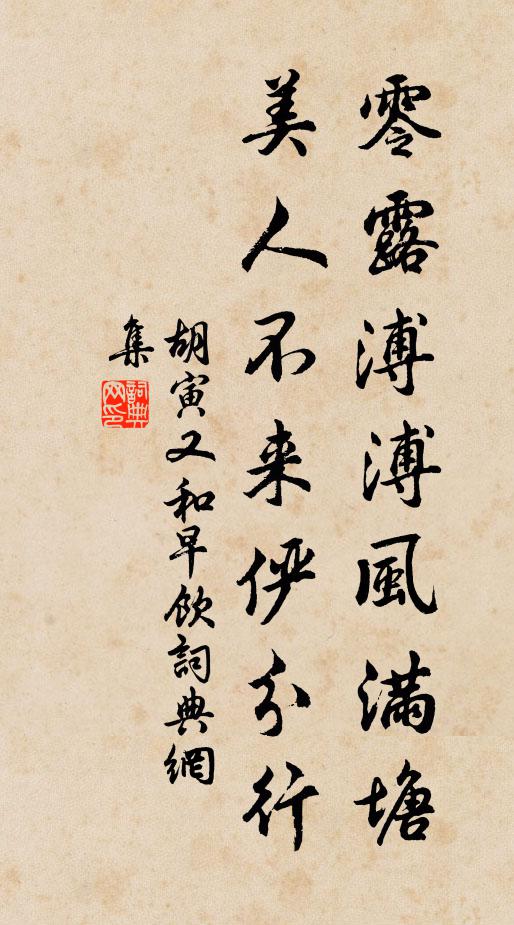 零露溥溥風滿塘
美人不来俨分行
胡寅又和早飲詞典網
集
詞典
网印